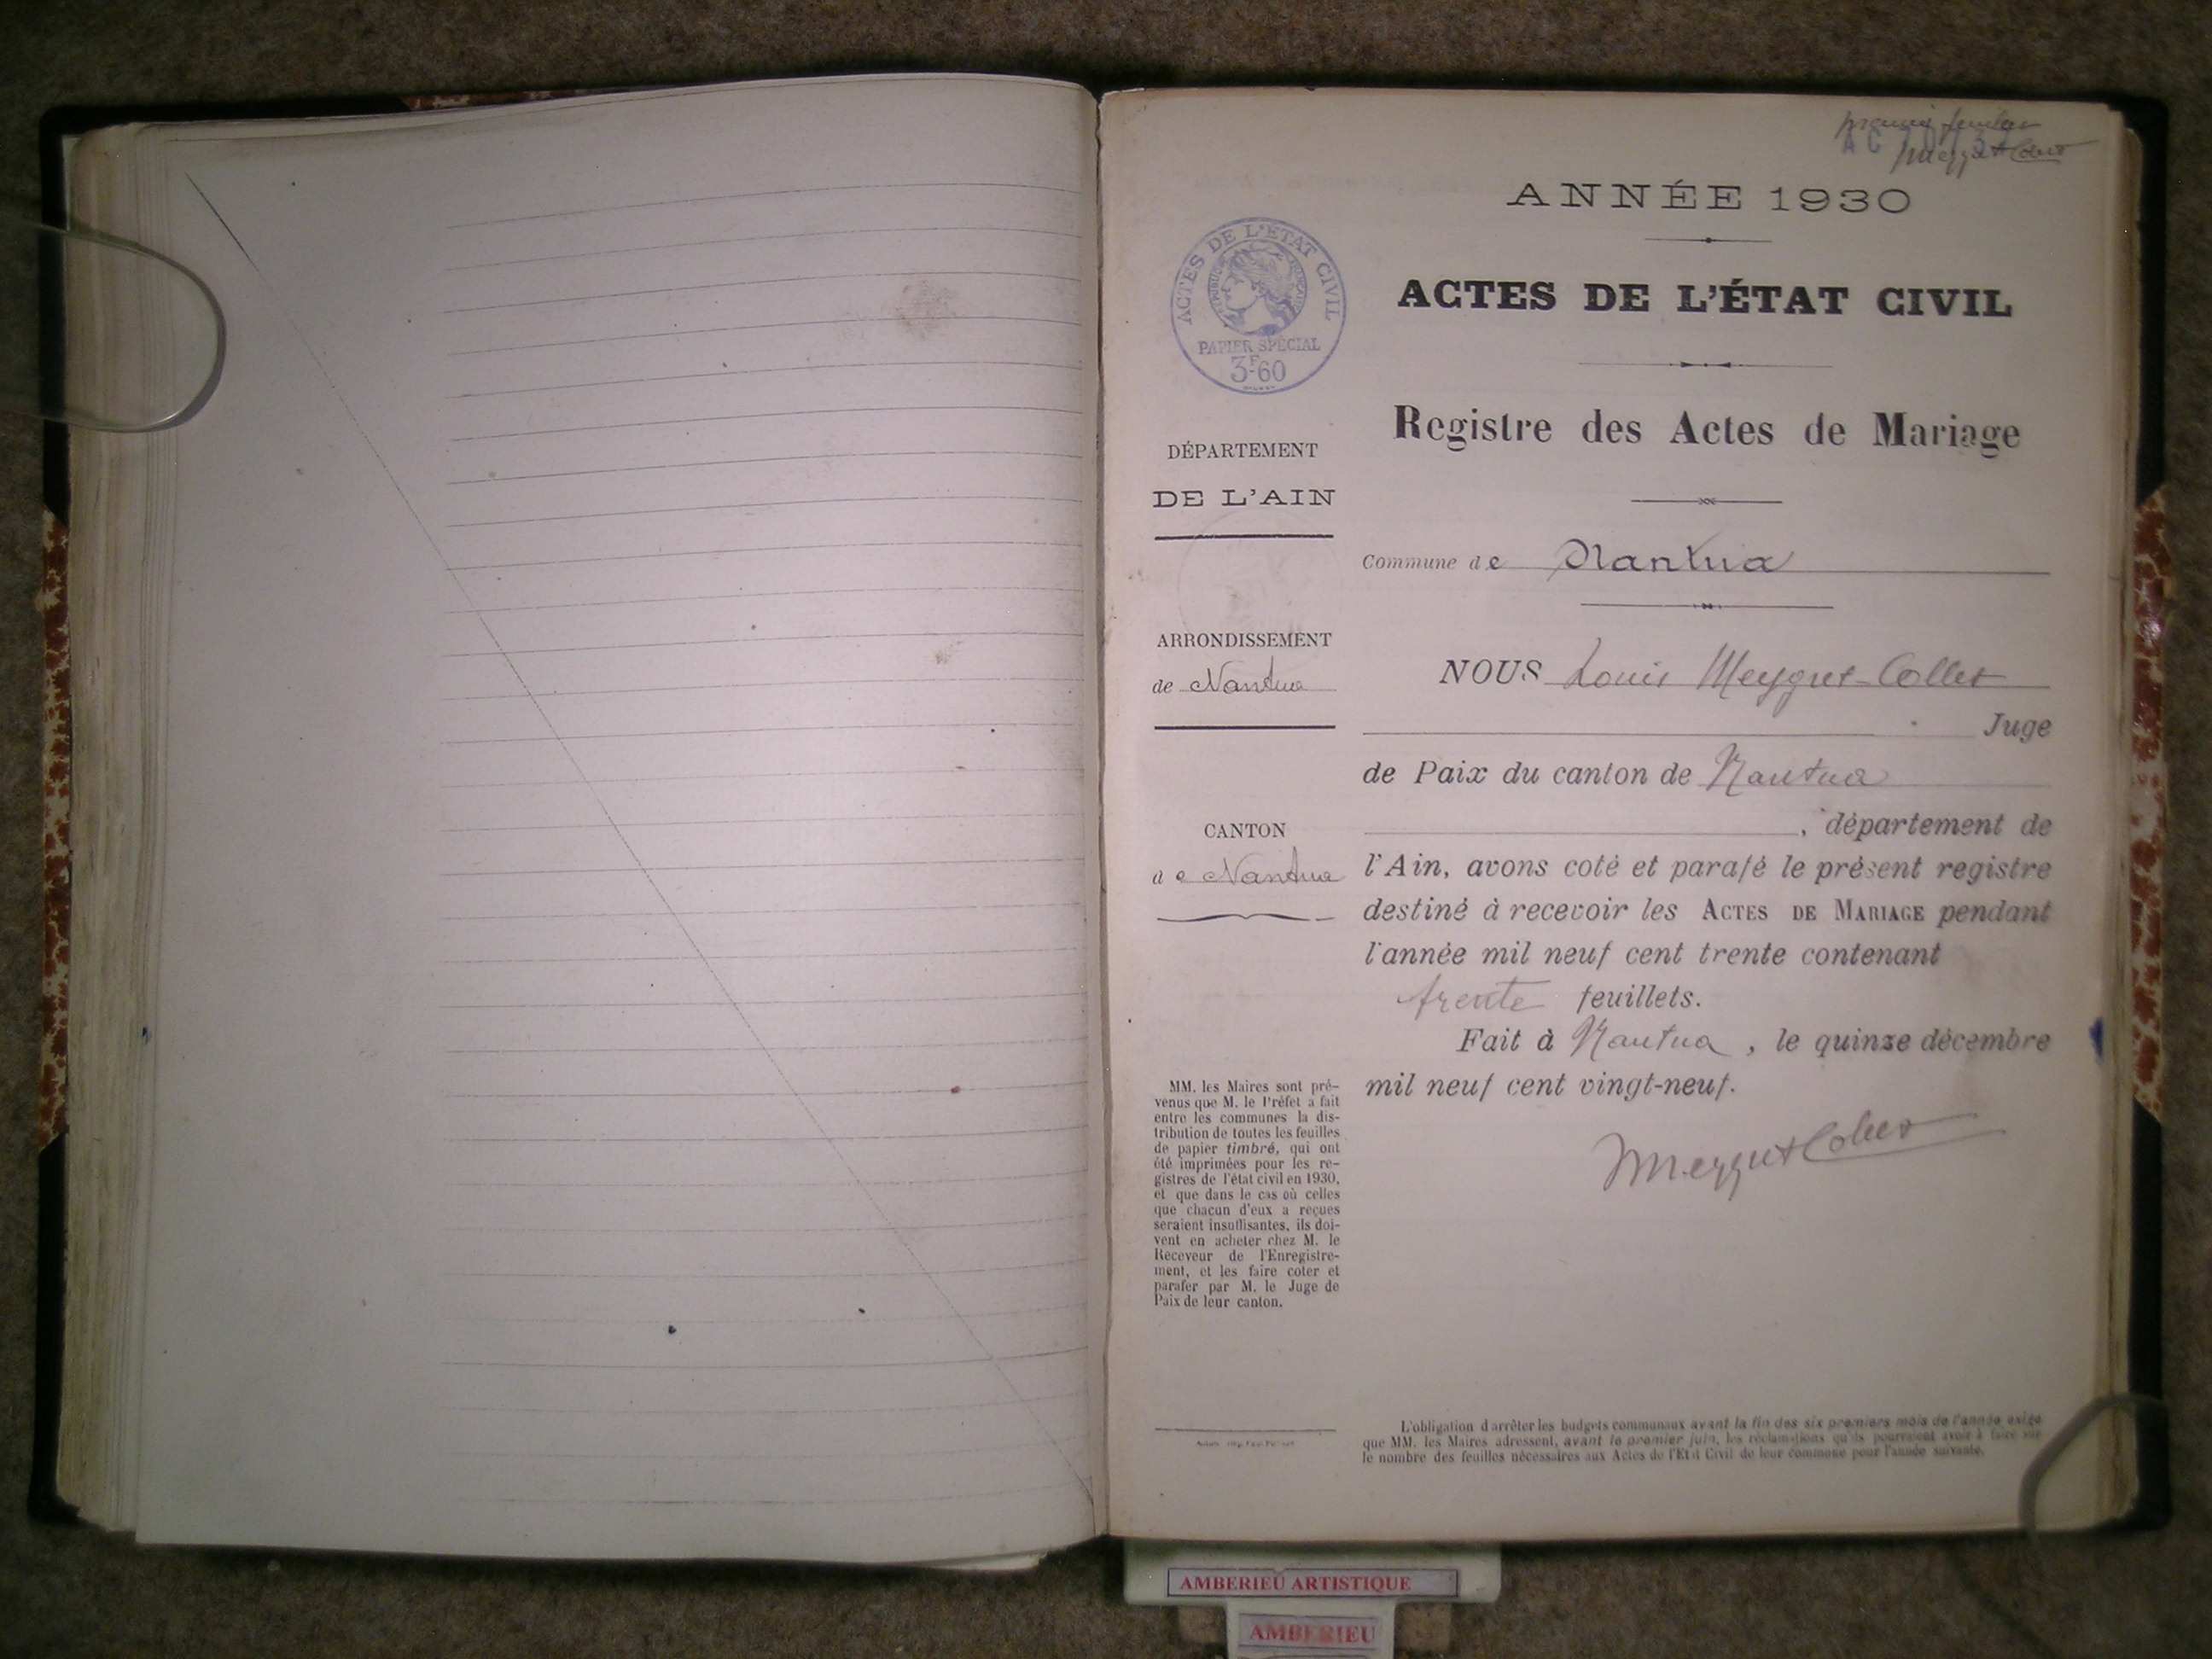 premier feuillet
Meygret-Collet
ANNÉE 1930
ACTES DE L'ÉTAT CIVIL
RÉPUBLIQUE FRANÇAISE
PAPIER SPÉCIAL
3F60
ACTES DE L'ÉTAT CIVIL
Registre des Actes de Mariage
DÉPARTEMENT
DE L'AIN
Commune de Nantua
ARRONDISSEMENT
de Nantua
CANTON
de Nantua
NOUS Louis Meygret-Collet
Juge
de Paix du canton de Nantua
, département de
l'Ain, avons coté et parafé le présent registre
destiné à recevoir les ACTES DE MARIAGE pendant
l'année mil neuf cent trente contenant
trente feuillets.
Fait à Nantua, le quinze décembre
mil neuf cent vingt-neuf.
Meygret-Collet
MM. les Maires sont pré-
venus que M. le Préfet a fait
entre les communes la dis-
tribution de toutes les feuilles
de papier timbré, qui ont
été imprimées pour les re-
gistres de l'état civil en 1930,
et que dans le cas où celles
que chacun d'eux a reçues
seraient insuffisantes, ils doi-
vent en acheter chez M. le
Receveur de l'Enregistre-
ment, et les faire coter et
parafer par M. le Juge de
Paix de leur canton.
L'obligation d'arrêter les budgets communaux avant la fin des six premiers mois de l'année exige
que MM. les Maires adressent, avant le premier juin, les réclamations qu'ils pourraient avoir à faire sur
le nombre des feuilles nécessaires aux Actes de l'Etat Civil de leur commune pour l'année suivante.
AMBERIEU ARTISTIQUE
AMBERIEU